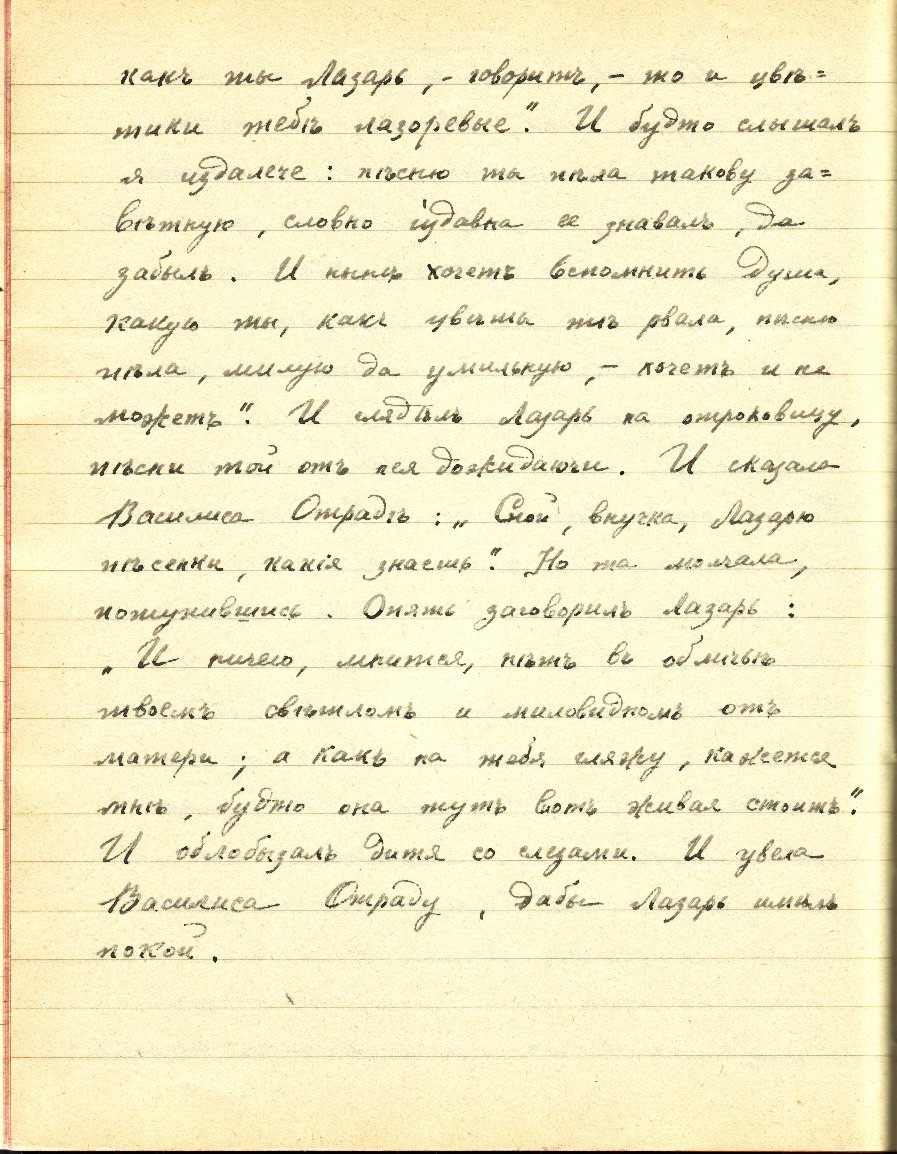 какъ ты Лазарь, – говоритъ, – то и цвѣ=
тики тебѣ лазоревые“. И будто слышалъ
я издалече: пѣсню ты пѣла такову за=
вѣтную, словно издавна ее знавалъ, да
забылъ. И нынѣ хочетъ вспомнить душа,
какую ты, какъ цвѣты тѣ рвала, пѣсню
пѣла, милую да умильную, – хочетъ и не
можетъ“. И глядѣлъ Лазарь на отроковицу,
пѣсни той отъ нея дожидаючи. И сказала
Василиса Отрадѣ: „Спой, внучка, Лазарю
пѣсенки, какія знаешь“. Но та молчала,
потупившись. Опять заговорилъ Лазарь:
„И ничего, мнится, нѣтъ въ обличьѣ
твоемъ свѣтломъ и миловидномъ отъ
матери; а какъ на тебя гляжу, кажется
мнѣ, будто она тутъ вотъ живая стоитъ“.
И облобызалъ дитя со слезами. И увела
Василиса Отраду, дабы Лазарь имѣлъ
покой.